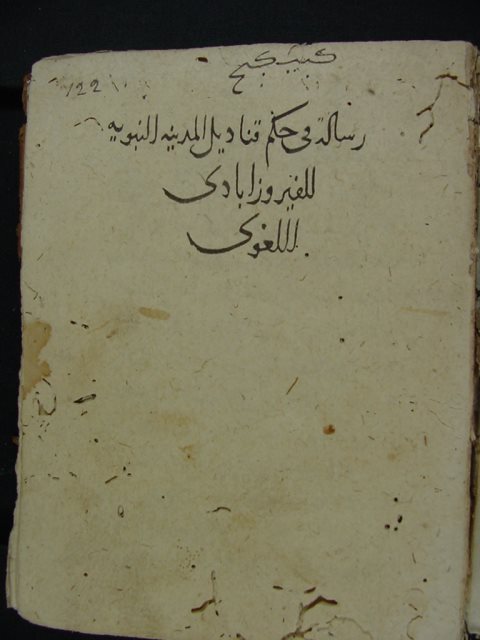 كبيكج
122
رسالة في حكم قناديل المدينه النبويه
للفيروزابادى
اللغوى